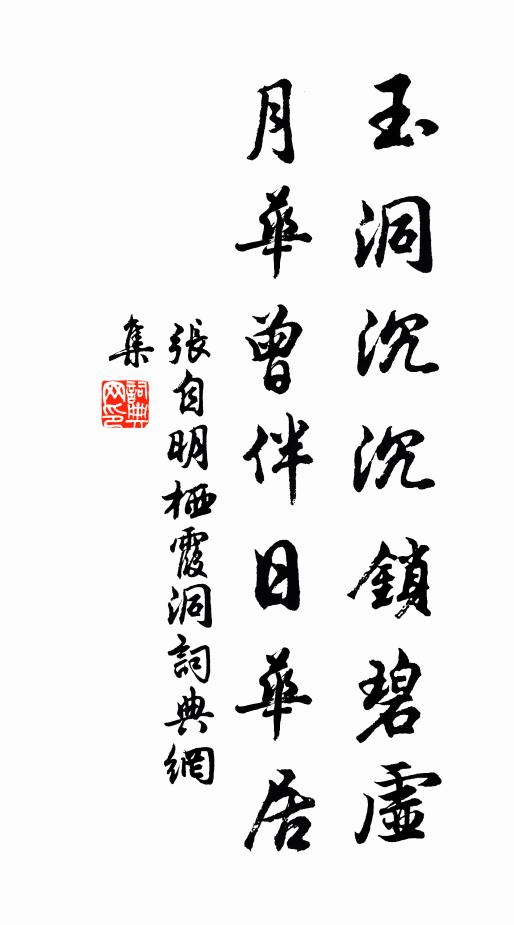 玉洞沉沉鎖碧虛
月華曾伴日華居
張自明栖霞洞詞典網
集
詞典網印